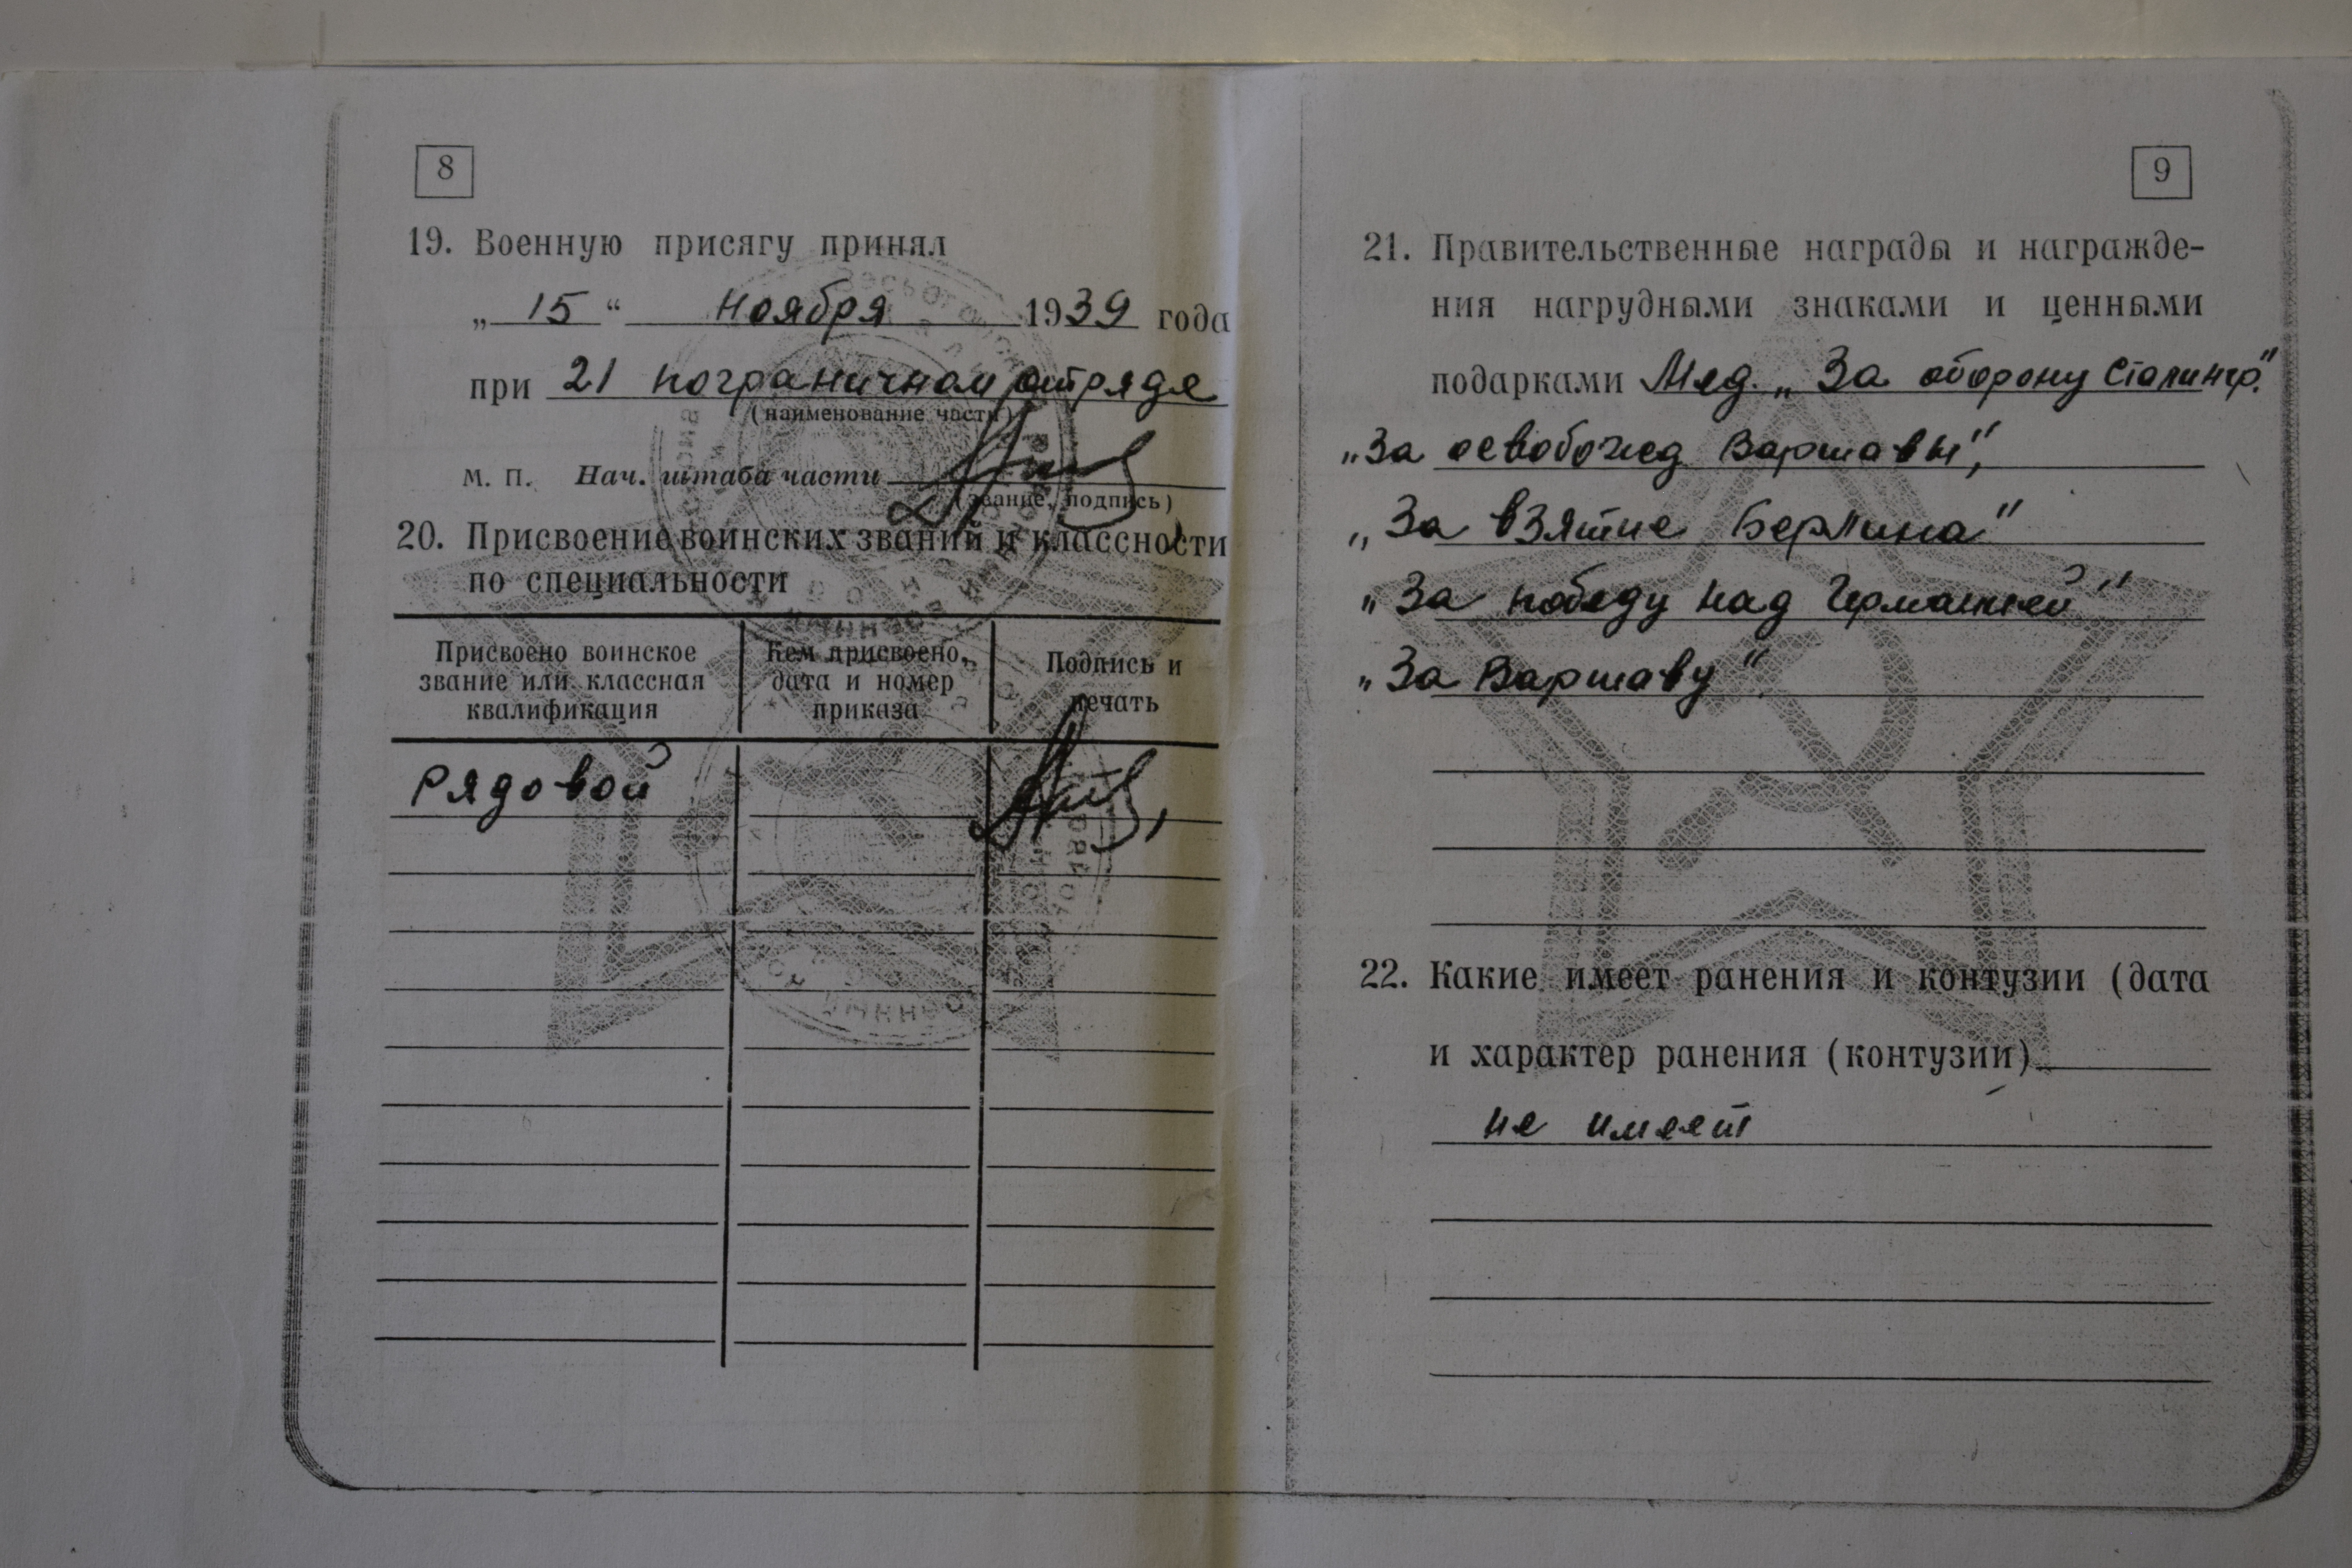 8
19. Военную присягу принял
„ 15 “ ноября 1939 года
при 21 пограничном отряде
(наименование части)
М. П. Нач. штаба части
(звание, подпись)
20. Присвоение воинских званий и классности
по специальности
Присвоено воинское звание или классная квалификация
Кем присвоено, дата и номер приказа
Подпись и печать
Рядовой
9
21. Правительственные награды и награжде-
ния нагрудными знаками и ценными
подарками Мед. „За оборону Сталингр."
„За освобожд Варшавы",
„За взятие Берлина"
„За победу над Германией"
„За Варшаву".
22. Какие имеет ранения и контузии (дата
и характер ранения (контузии)
не имеет